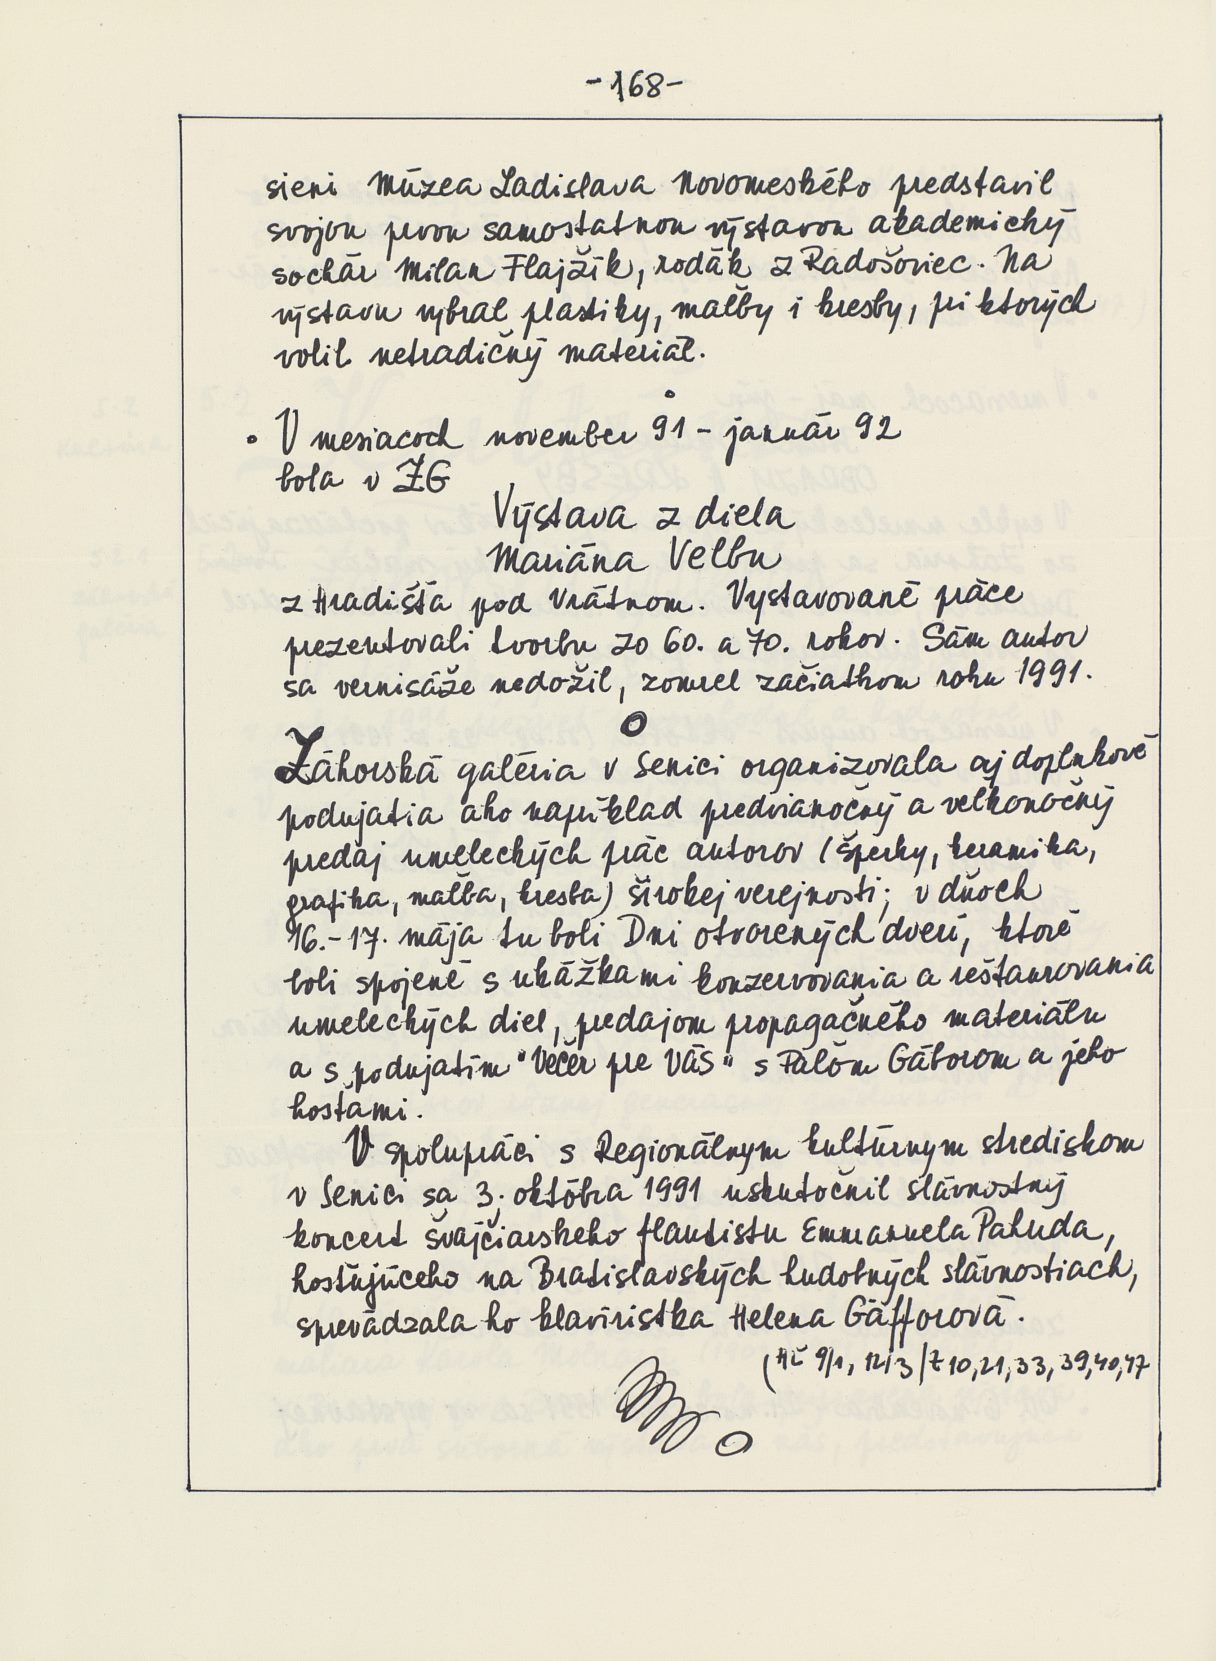 -168-
sieni Múzea Ladislava Novomeského predstavil
svojou prvou samostatnou výstavou akademický
sochár Milan Flajžík, rodák z Radošoviec. Na
výstavu vybral plastiky, maľby i kresby, pri ktorých
volil netradičný materiál.
V mesiacoch november 91 - január 92
bola v ZG
Výstava z diela
Mariána Velbu
z Hradišťa pod Vrátnom. Vystavované práce
prezentovali tvorbu zo 60. a 70. rokov. Sám autor
sa vernisáže nedožil, zomrel začiatkom roku 1991.
Záhorská galéria v Senici organizovala aj doplnkové
podujatia ako napríklad predvianočný a veľkonočný
predaj umeleckých prác autorov (šperky, keramika,
grafika, maľba, kresba) širokej verejnosti; v dňoch
16.-17. mája tu boli Dni otvorených dverí, ktoré
boli spojené s ukážkami konzervovania a reštaurovania
umeleckých diel, predajom propagačného materiálu
a s podujatím "Večer pre Vás" s Paľom Gáborom a jeho
hosťami.
V spolupráci s Regionálnym kultúrnym strediskom
v Senici sa 3. októbra 1991 uskutočnil slávnostný
koncert švajčiarskeho flautistu Emmanuela Pahuda,
hosťujúceho na Bratislavských hudobných slávnostiach,
sprevádzala ho klaviristka Helena Gáfforová.
(HČ 9/1, 12/3 / Z 10, 21, 33, 39, 40, 47